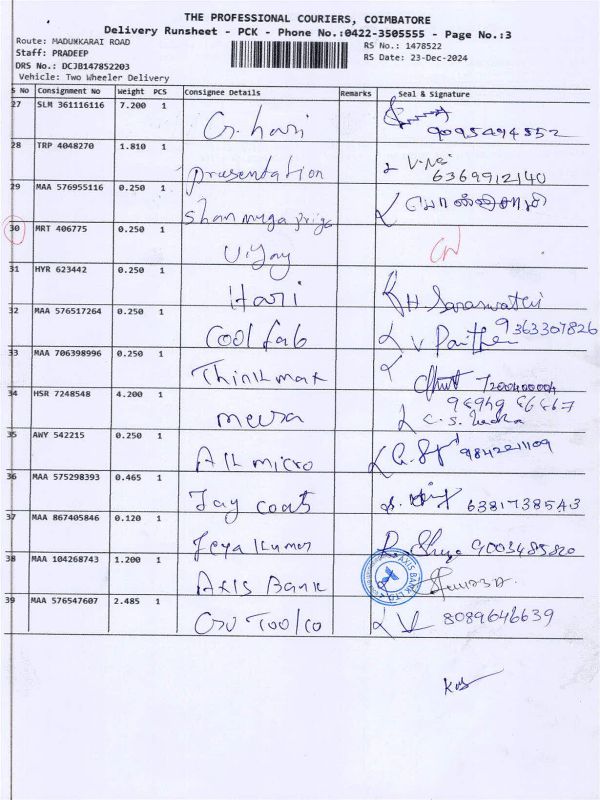 THE PROFESSIONAL COURIERS, COIMBATORE
Delivery Runsheet - PCK - Phone No.:0422-3505555 - Page No.:3
Route: MADUKKARAI ROAD
RS No.: 1478522
Staff: PRADEEP
RS Date: 23-Dec-2024
DRS No.: DCJB147852203
Vehicle: Two Wheeler Delivery
S No Consignment No Weight PCS Consignee Details Remarks Seal & Signature
27 SLM 361116116 7.200 1 G. hari 9095494552
28 TRP 4048270 1.810 1 presentation 6369912140
29 MAA 576955116 0.250 1 Shanmuga priya
30 MRT 406775 0.250 1 Vijay
31 HYR 623442 0.250 1 Hari H. Saraswathi
32 MAA 576517264 0.250 1 Cool fab 9363307826
33 MAA 706398996 0.250 1 Think max
34 HSR 7248548 4.200 1 meera
35 ANY 542215 0.250 1 Alk micro
36 MAA 575298393 0.465 1 Jay coats 6381738543
37 MAA 867405846 0.120 1 Jeya Kumar 9003485820
38 MAA 104268743 1.200 1 Axis Bank AXIS BANK LTD
39 MAA 576547607 2.485 1 8089646639